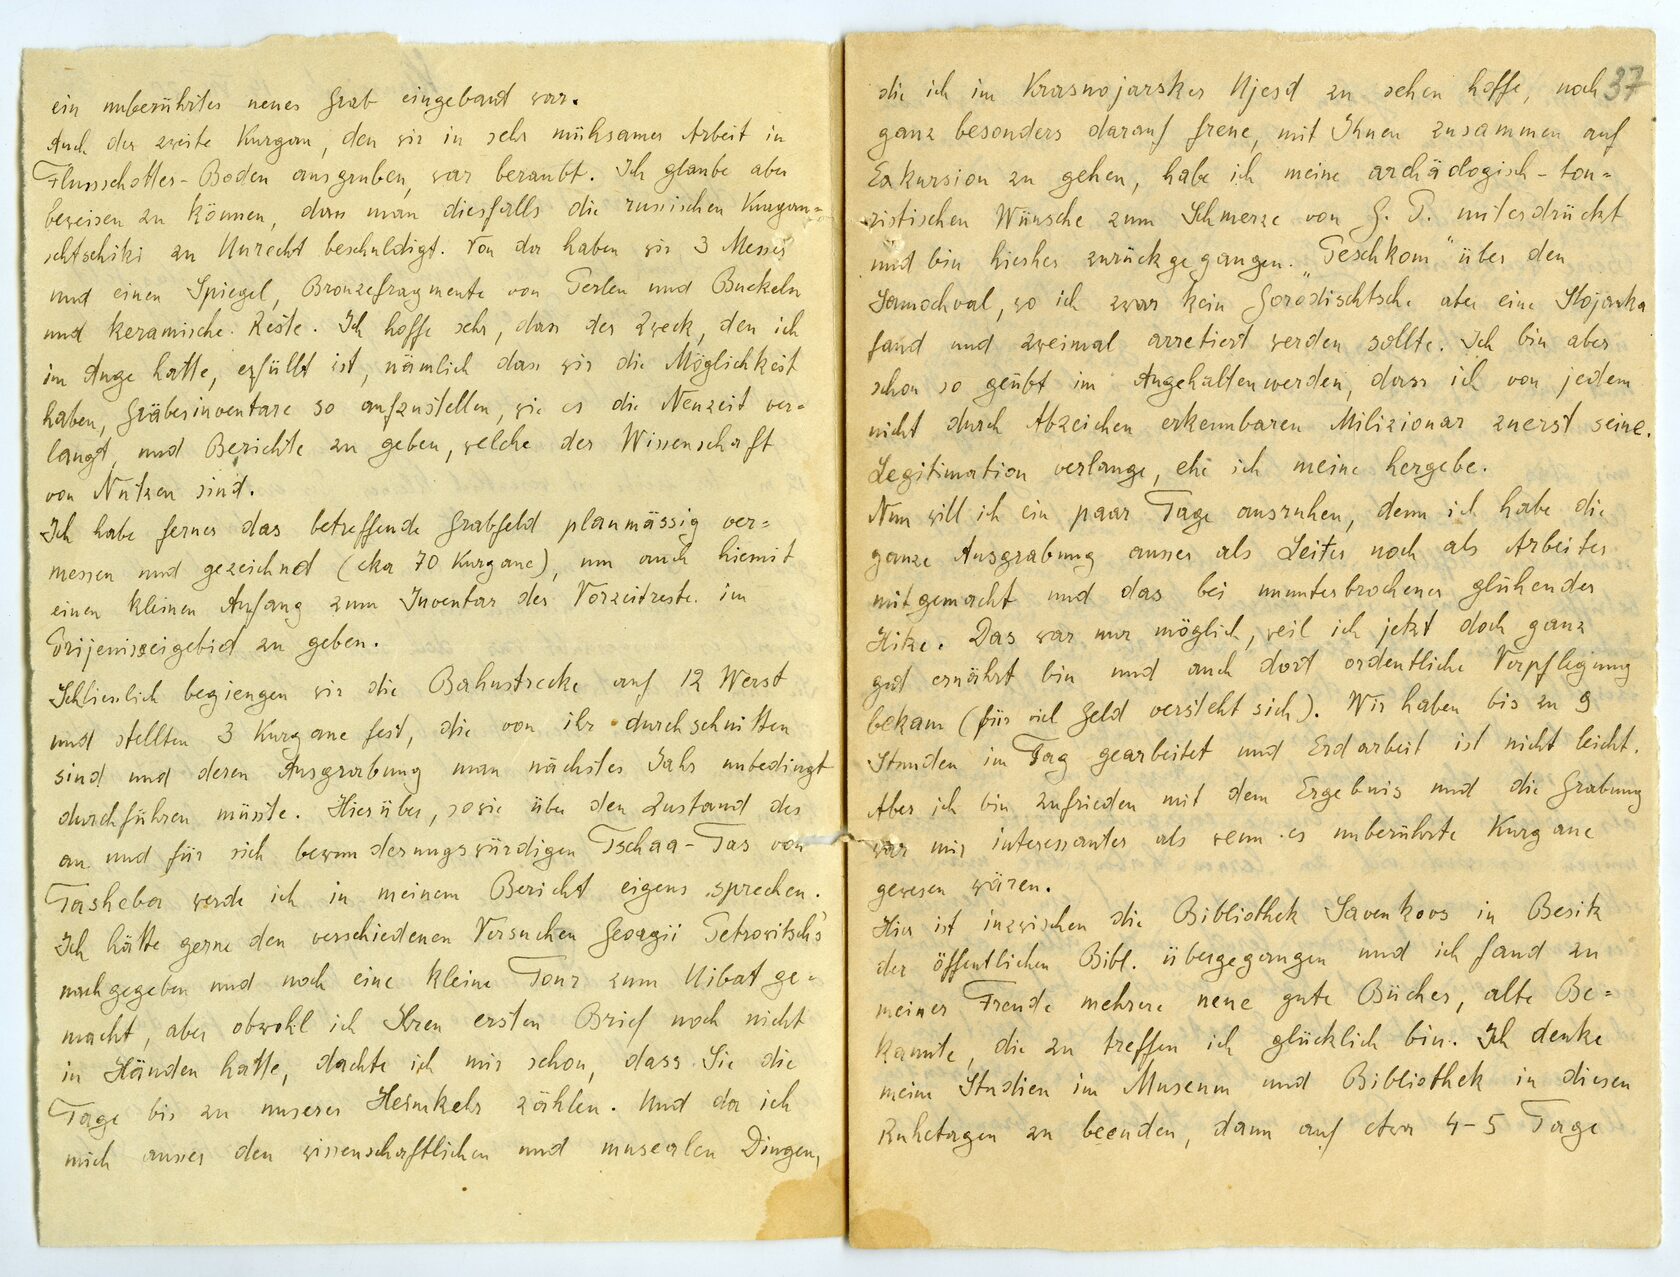 ein unberührtes neues Grab eingebaut war.
Auch der zweite Kurgan, den wir in sehr mühsamer Arbeit in
Flussschotter-Boden ausgruben, war beraubt. Ich glaube aber
beweisen zu können, dass man diesfalls die russischen Kurgan-
schtschiki zu Unrecht beschuldigt. Von da haben wir 3 Messer
und einen Spiegel, Bronzefragmente von Perlen und Buckeln
und keramische Reste. Ich hoffe sehr, dass der Zweck, den ich
im Auge hatte, erfüllt ist, nämlich dass wir die Möglichkeit
haben, Gräberinventare so aufzustellen, wie es die Neuzeit ver=
langt, und Berichte zu geben, welche der Wissenschaft
von Nutzen sind.
Ich habe ferner das betreffende Grabfeld planmässig ver=
messen und gezeichnet (cka 70 Kurgane), um auch hiemit
einen kleinen Anfang zum Inventar der Vorzeitreste im
Prijenisseigebiet zu geben.
Schliesslich begiengen wir die Bahnstrecke auf 12 Werst
und stellten 3 Kurgane fest, die von ihr durchschnitten
sind und deren Ausgrabung man nächstes Jahr unbedingt
durchführen müsste. Hierüber, sowie über den Zustand des
an und für sich bewunderungswürdigen Tschaa-Tas von
Tasheba werde ich in meinem Bericht eigens sprechen.
Ich hätte gerne den verschiedenen Versuchen Georgii Petrowitsch's
nachgegeben und noch eine kleine Tour zum Uibat ge-
macht, aber obwohl ich Ihren ersten Brief noch nicht
in Händen hatte, dachte ich mir schon, dass Sie die
Tage bis zu unserer Heimkehr zählen. Und da ich
mich ausser den wissenschaftlichen und musealen Dingen,
37
die ich im Krasnojarsker Ujesd zu sehen hoffe, noch
ganz besonders darauf freue, mit Ihnen zusammen auf
Exkursion zu gehen, habe ich meine archäologisch-tou=
ristischen Wünsche zum Schmerze von G. P. unterdrückt
und bin hierher zurückgegangen. „Peschkom" über den
Samochval, wo ich zwar kein Gorodischtsche aber eine Stojanka
fand und zweimal arretiert werden sollte. Ich bin aber
schon so geübt im Angehaltenwerden, dass ich von jedem
nicht durch Abzeichen erkennbaren Milizionar zuerst seine
Legitimation verlange, ehe ich meine hergebe.
Nun will ich ein paar Tage ausruhen, denn ich habe die
ganze Ausgrabung ausser als Leiter noch als Arbeiter
mitgemacht und das bei ununterbrochener glühender
Hitze. Das war nur möglich, weil ich jetzt doch ganz
gut ernährt bin und auch dort ordentliche Verpflegung
bekam (für viel Geld versteht sich). Wir haben bis zu 9
Stunden im Tag gearbeitet und Erdarbeit ist nicht leicht.
Aber ich bin zufrieden mit dem Ergebnis und die Grabung
war mir interessanter als wenn es unberührte Kurgane
gewesen wären.
Hier ist inzwischen die Bibliothek Savenkovs in Besitz
der öffentlichen Bibl. übergegangen und ich fand zu
meiner Freude mehrere neue gute Bücher, alte Be=
kannte, die zu treffen ich glücklich bin. Ich denke
meine Studien im Museum und Bibliothek in diesen
Ruhetagen zu beenden, dann auf etwa 4-5 Tage